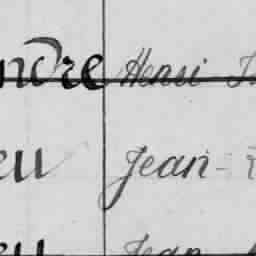 ndre Henri J.
eu Jean-
eu Jean